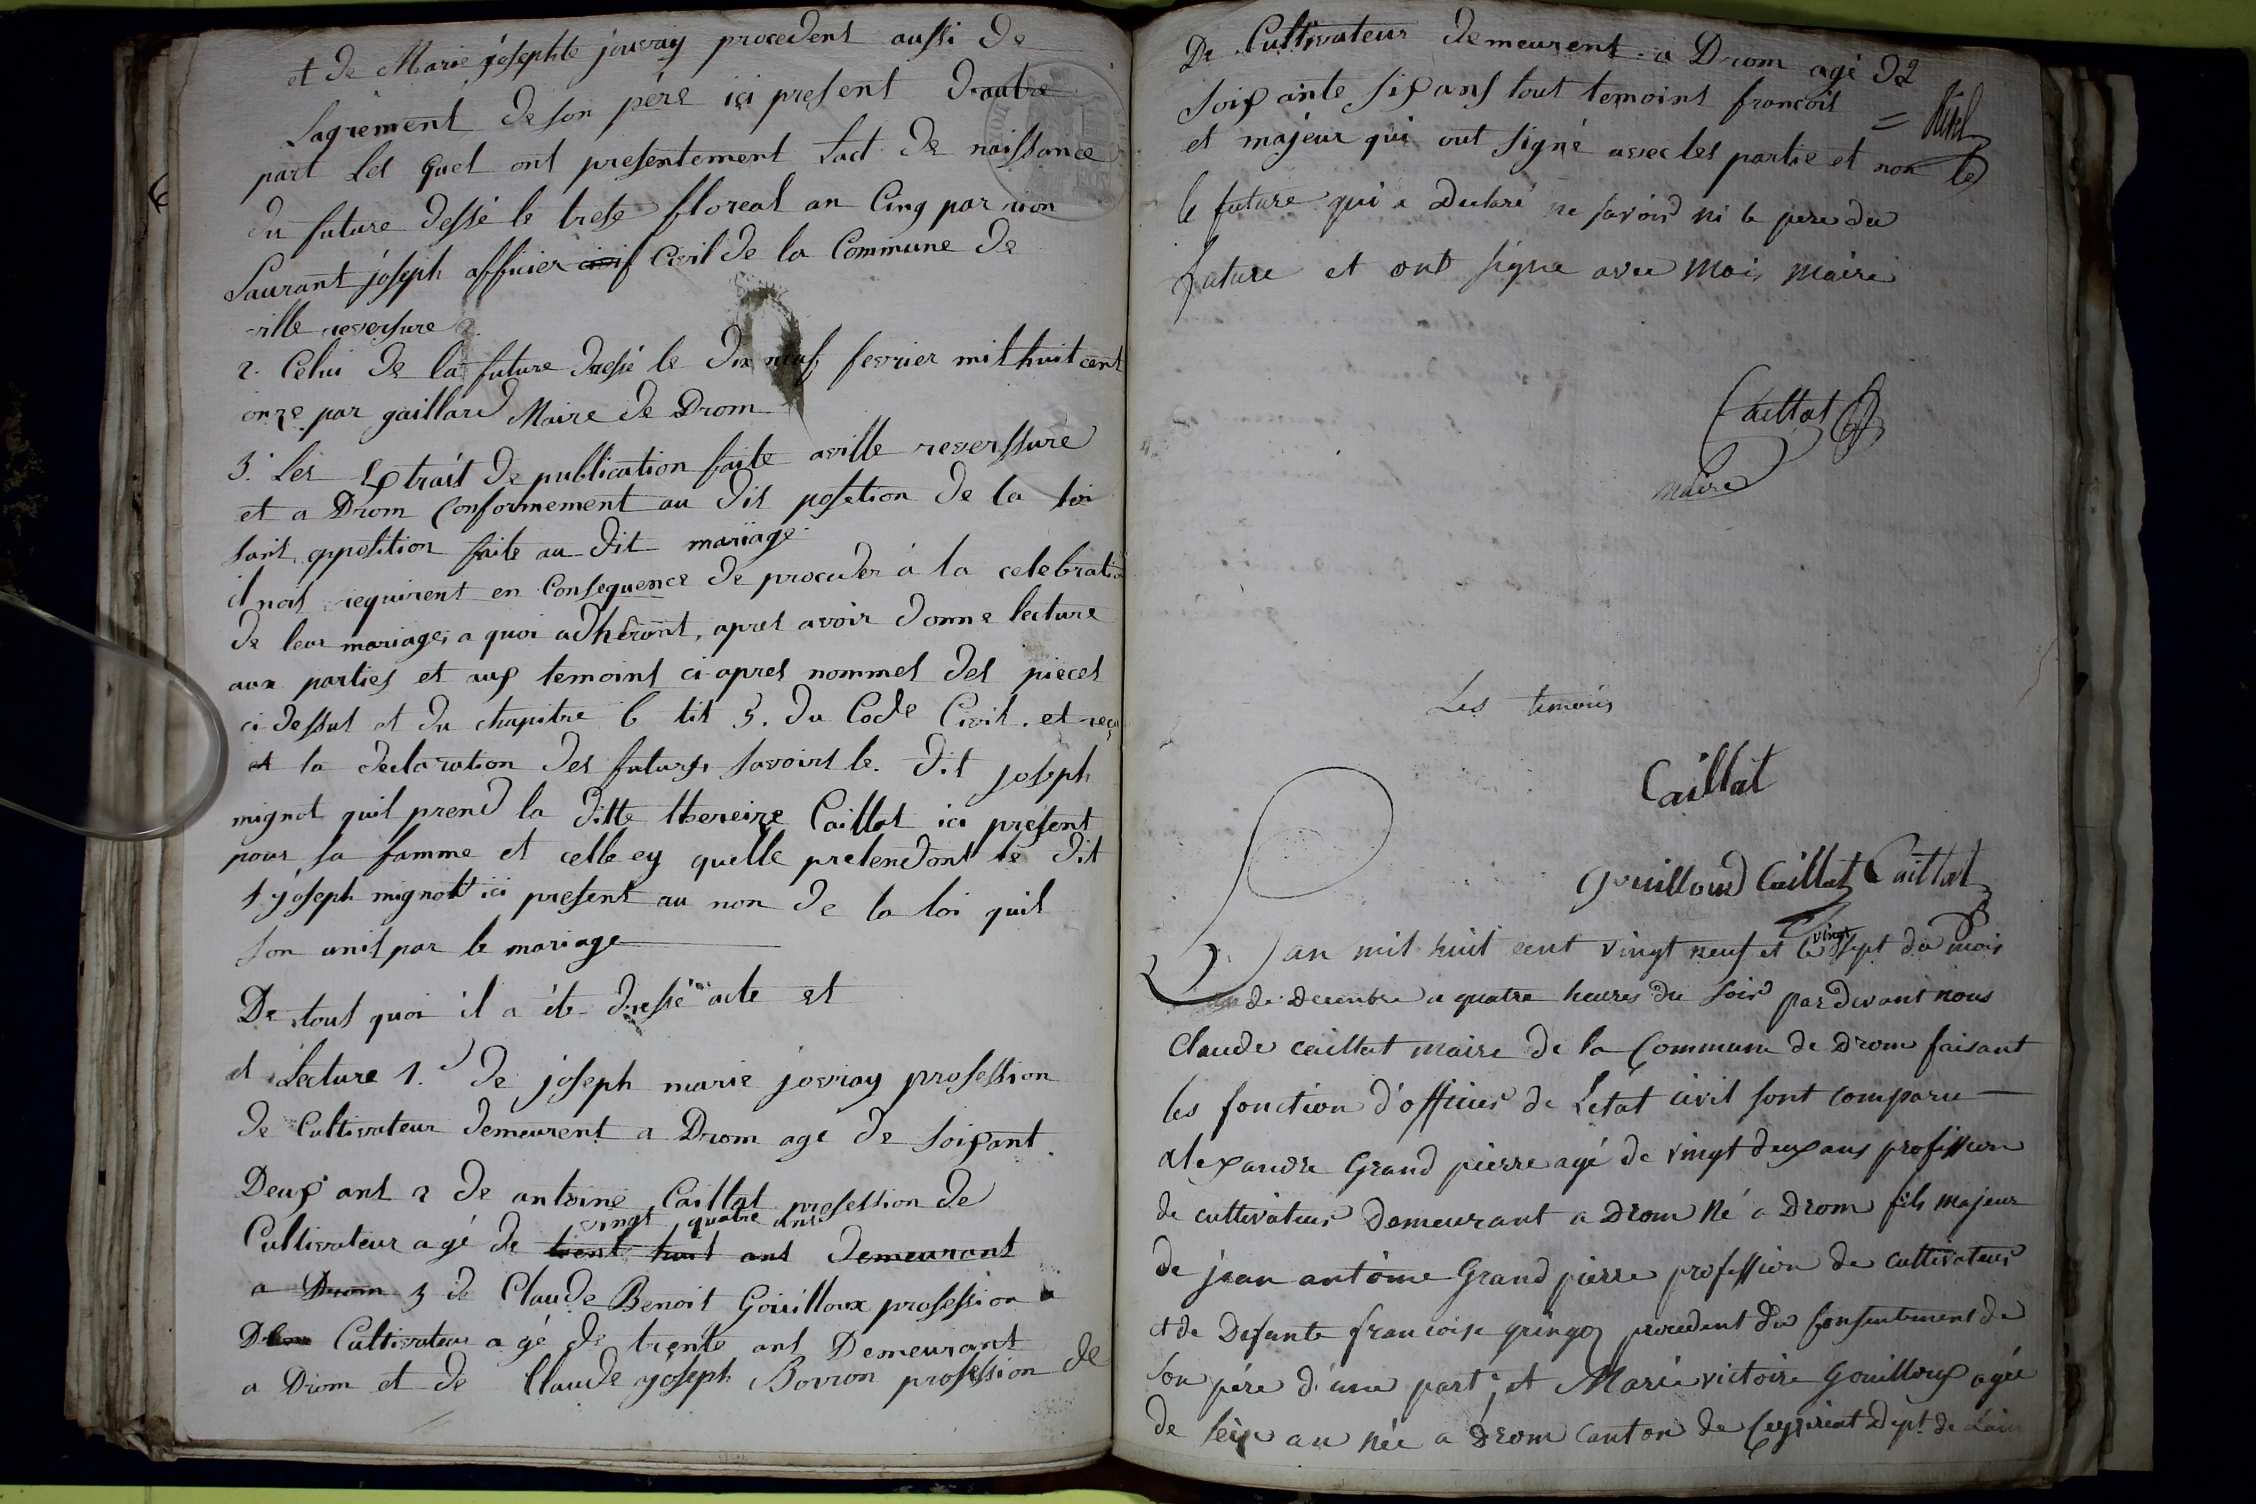 et de Marie josephte jouvray procedent aussi de
Lagrement de son pére ici present dautre
part Les quel ont presentement Lact de naissance
du future dessé le trese floreal an Cinq par
Laurant joseph officier civil de la Commune de
ville reversure
2. Celui de la future dressé le dix neuf fevrier mil huit cent
onze par gaillard Maire de Drom
3. Les Extrait de publication faite a ville reverssure
et a Drom Conformement au dis position de la loi
sans opposition faite au dit mariage
il nous requirent en Consequence de proceder à la celebration
de leur mariage, a quoi adhéront, apres avoir donne lecture
aux parties et aux temoins ci-apres nommes des pieces
ci dessus et du chapitre 6 tit 5. du Code Civil. et reçu
et la declaration des futurs, savoirs le. dit joseph
mignot quil prend la ditte thereize Caillat ici présent
pour sa famme et celle cy quelle pretendont le dit
joseph mignott ici present au non de la loi quil
son unis par le mariage
De tout quoi il a éte dressé acte et
et Lecture 1. de joseph marie jovray profession
de Cultivateur demeurent a Drom age de soixant
Deux ans 2 de antoine Caillat profession de
vingt quatre ans
Cultivateur agé de trent huit ans demeurant
a Drom 3 de Claude Benoit Gouilloux profession
Cultivateur agé de trente ans Demeurant
a Drom et de Claude joseph Bovron profession de
De Cultivateur demeurent a Drom agé de
soixante six ans tout temoins francois
et majeur qui ont signé avec les partie et non le
le future qui a Declaré ne savoir ni le pere du
future et ont signe avec moi maire
Caillat
maire
Les temoins
Caillat
Gouilloud Caillat Caillat
L'an mil huit cent vingt neuf et le vingt sept du mois
de decembre a quatre heures du soir par devant nous
Claude caillat maire de la Commune de Drom faisant
les fonction d'officier de L'etat civil sont comparu
alexandre Grand pierre agé de vingt deux ans profession
de cultivateur Demeurant a Drom Né a Drom fils majeur
de jean antoine Grand pierre profession de cultivateur
et de Defante francoise gringoz procedent du Consentement de
son pére d'une part; et Marie victoire Gouilloux agée
de seize an Née a Drom Canton de Ceyzeriat Dept. de Lain